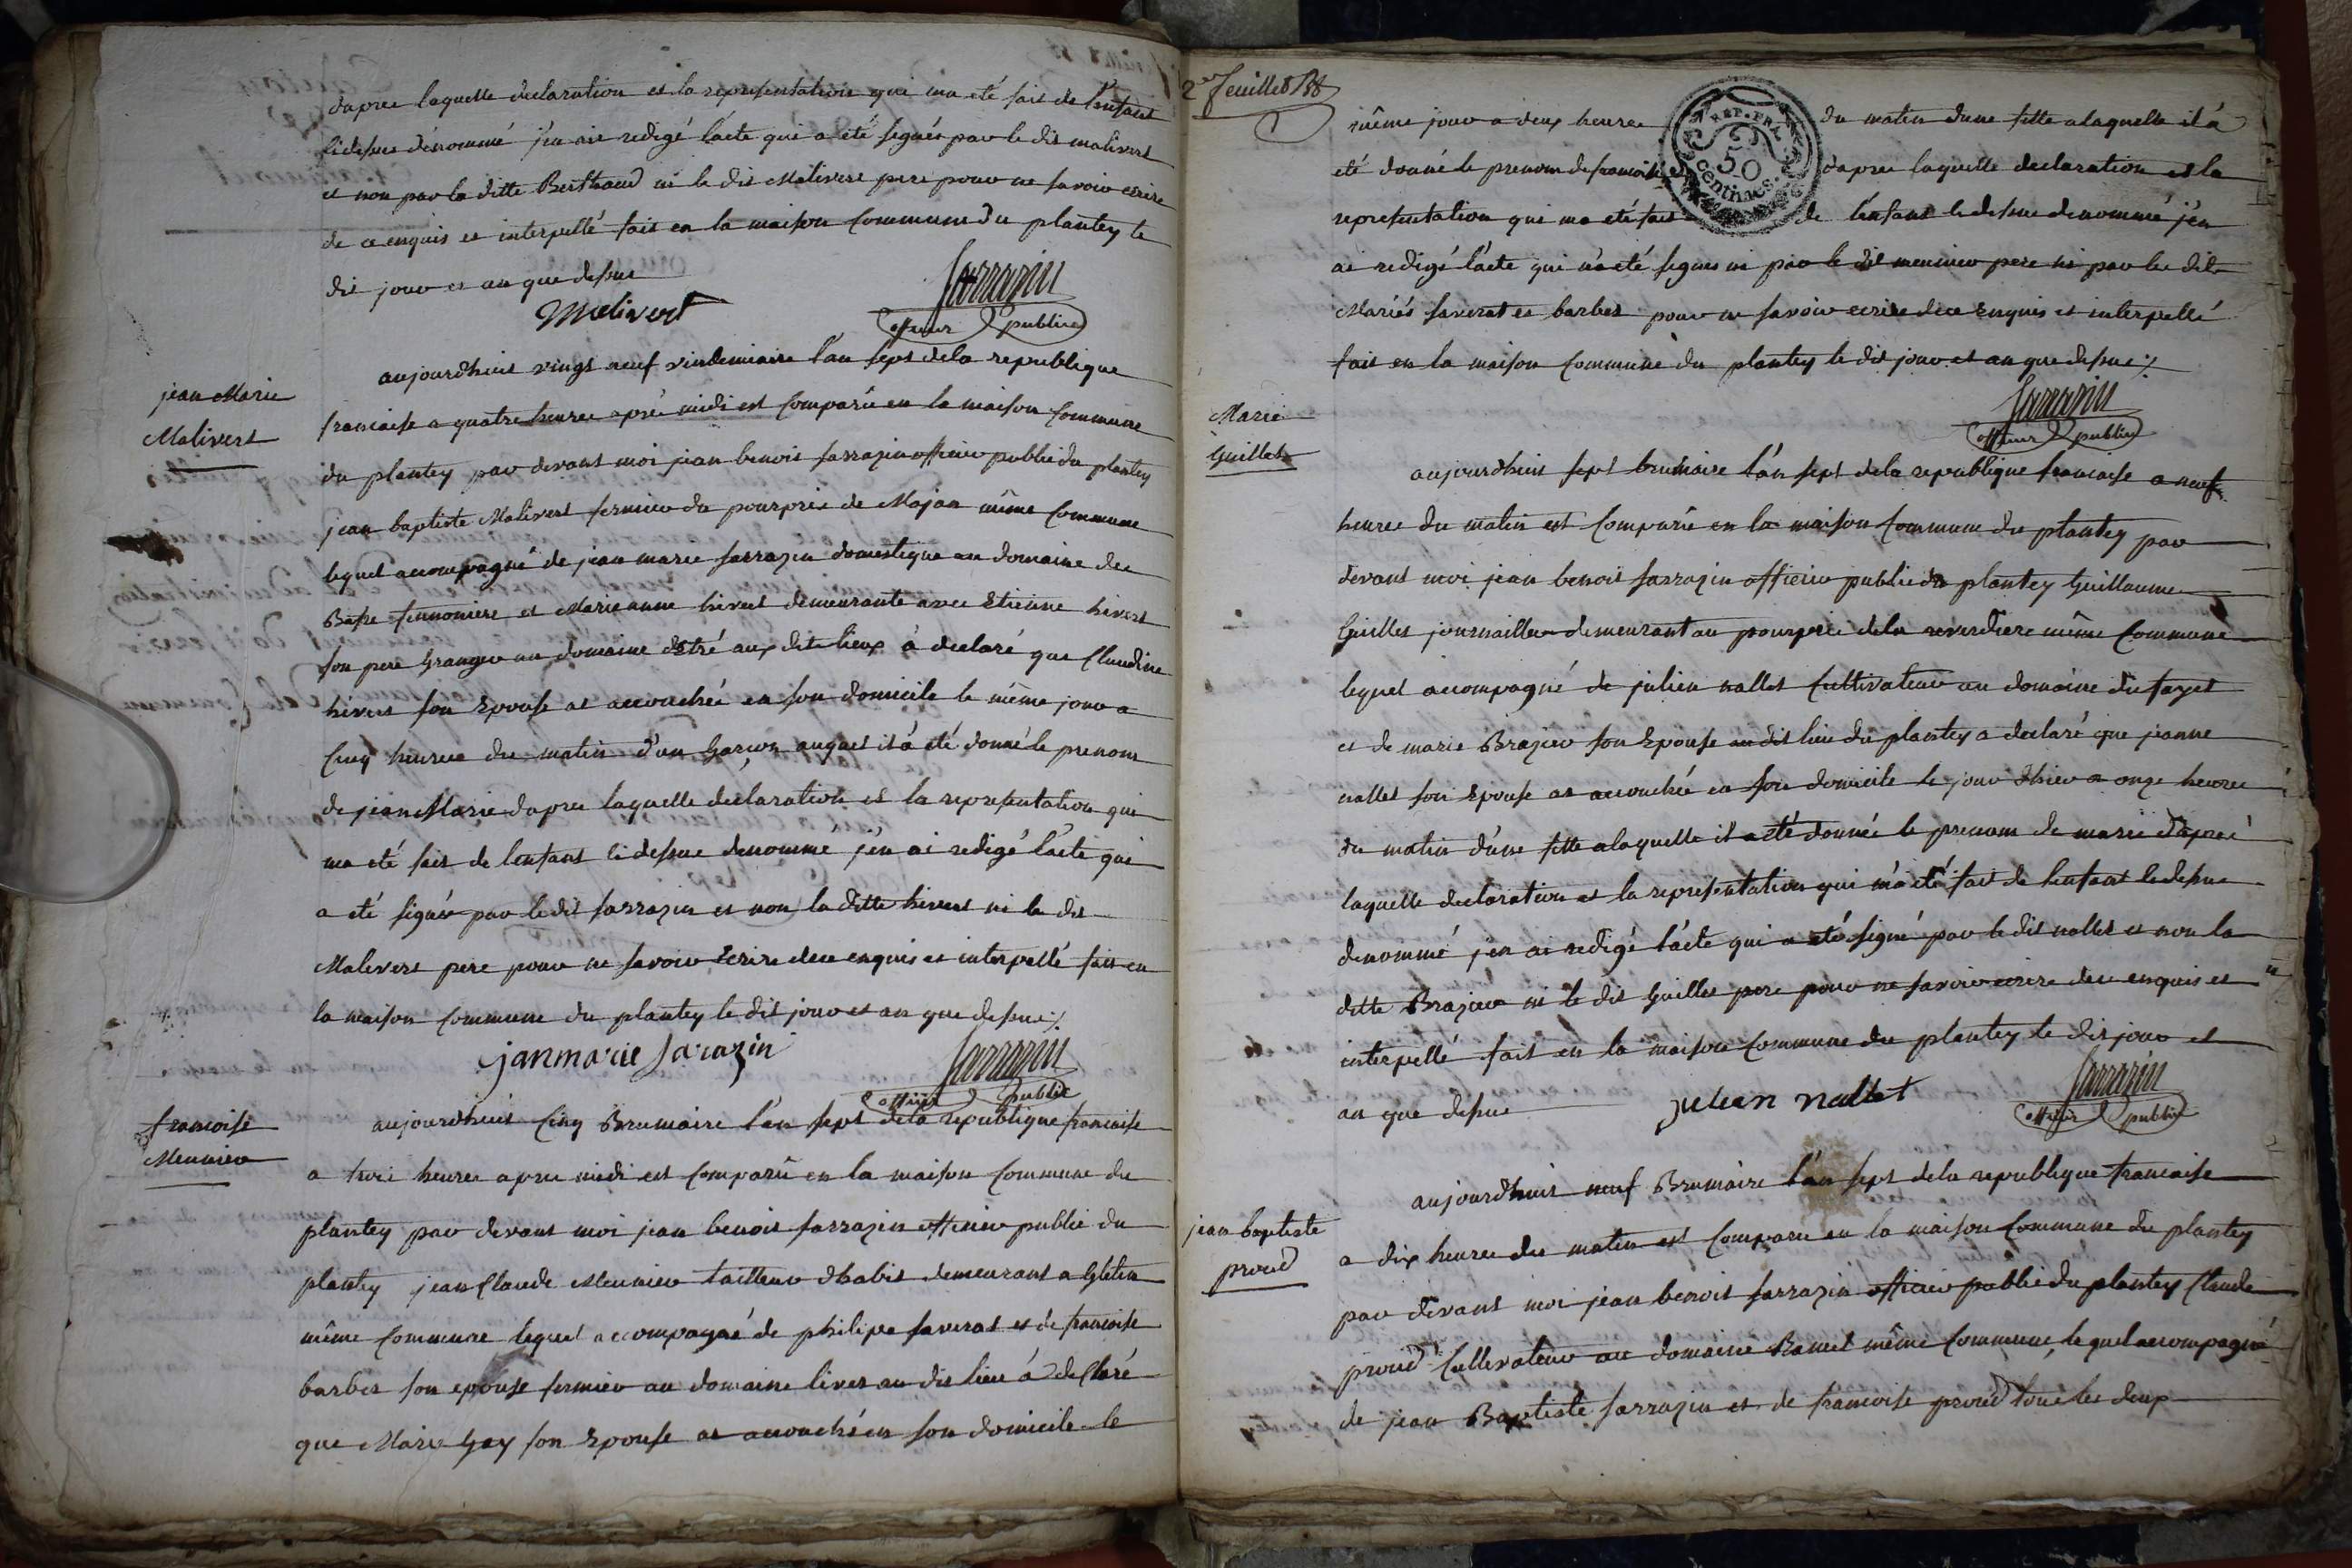 dapres laquelle declaration et la representation qui ma eté fait de l'enfant
cidessus dénommé j'en aie redigé l'acte qui a eté signés par le dit malivert
et non par la ditte Berthaud ni le dit Malivert pere pour ne savoir ecrire
de ce enquis et interpellé fait en la maison commune du plantey le
dit jour et an que dessus
Malivert
Sarrazin
officier public
jean Marie
Malivert
aujourdhuit vingt neuf vindemiaire l'an sept dela republique
francaise a quatre heures aprés midi est comparû en la maison commune
du plantey par devant moi jean benoit sarrazin officier public du plantey
jean baptiste Malivert fermier du pourprix de Majan même commune
lequel accompagné de jean marie sarrazin domestique au domaine de
Basse et Marieanne hivert demeurante avec Etienne hivert
son pere Granger au domaine aux dits lieux à declaré que Claudine
hivert son Epouse at accouchée en son domicile le même jour a
cinq heures du matin d'un Garçon auquel il à eté donné le prenom
de jean Marie dapres laquelle declaration et la representation qui
ma eté fait de l'enfant cidessus denommé j'en ai redigé l'acte qui
a eté signér par ledit sarrazin et non la ditte hivert ni le dit
Malivert pere pour ne savoir Ecrire dece enquis et interpellé fait en
la maison commune du plantey le dit jour et an que dessus ./.
janmarie Sarazin
Sarrazin
officier public
francoise
Meunier
aujourdhuit cinq Brumaire l'an sept dela republique francaise
a trois heures apres midi est comparû en la maison commune du
plantey par devant moi jean benoit sarrazin officier public du
plantey jean Claude Meunier tailleur dhabit demeurant a
même commune lequel accompagné de philipe saverat et de francoise
barbet son epouse fermier au domaine au dit lieu á declaré
que Marie Gay son Epouse at accouchée en son domicile le
2er feuillet
même jour a deux heures du matin dune fille alaquelle il á
REP. FRA.
50
centimes.
eté donné le prenom de francoise dapres laquelle declaration et la
representation qui ma eté fait de l'enfant ledessus denommé j'en
ai redigé l'acte qui n'a eté signés ni par le dit meunier pere ni par les dits
Mariés saverat et barbet pour ne savoir ecrire dece Enquis et interpellé
fait en la maison commune du plantey le dit jour et an que dessus ./.
Sarrazin
officier public
Marie
Guillet
aujourdhuit sept brumaire l'an sept dela republique francaise a neuf
heures du matin est comparû en la maison commune du plantey par
devant moi jean benoit sarrazin officier public du plantey Guillaume
Guillet journaillier demeurant au pourprix dela même commune
lequel accompagné de julien nallet cultivateur au domaine du
et de marie Brazier son Epouse au dit lieu du plantey a declaré que jeanne
nallet son Epouse at accouchée en son domicile le jour dhier a onze heures
du matin d'une fille alaquelle il a eté donnée le prenom de marie d'aprés
laquelle declaration et la representation qui m'a eté fait de l'enfant ledessus
denommé j'en ai redigé l'acte qui a eté signé par le dit nallet et non la
ditte Brazier ni le dit Guillet pere pour ne savoir ecrire dece enquis et
interpellé fait en la maison commune du plantey le dit jour et
an que dessus
julien nallet
Sarrazin
officier public
jean baptiste
proud
aujourdhuit neuf Brumaire l'an sept dela republique francaise
a dix heures du matin est comparu en la maison commune du plantey
par devant moi jean benoit sarrazin officier public du plantey Claude
proud cultivateur au domaine même commune, lequel accompagné
de jean Baptiste sarrazin et de francoise proud tous les deux